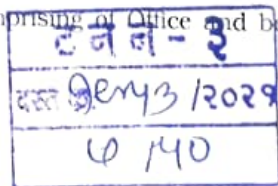 prising of Office and b
ट न न - ३
दस्त /२०२१
७ /५०